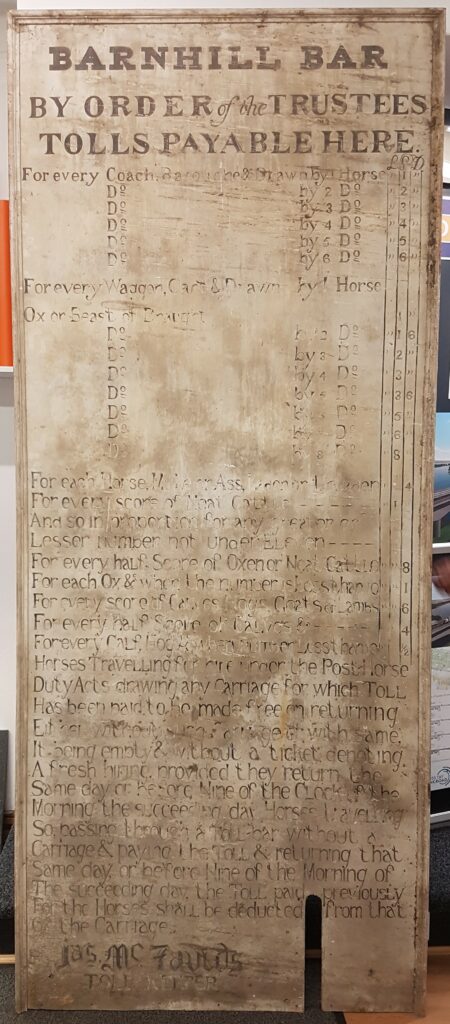 BARNHILL BAR
BY ORDER of the TRUSTEES
TOLLS PAYABLE HERE.
£ S D
For every Coach, Barouche & Drawn by 1 Horse " 1 "
Do by 2 Do " 2 "
Do by 3 Do " 3 "
Do by 4 Do " 4 "
Do by 5 Do " 5 "
Do by 6 Do " 6 "
For every Waggon, Cart & Drawn by 1 Horse
Ox or Beast of Draught 1 "
Do by 2 Do " 1 6
Do by 3 Do 2
Do by 4 Do 3
Do by Do 3 6
Do by Do 5
Do by Do 6
Do by 8 Do 8
For each Horse, Ass, Laden or 4
For every score of Neat Cattle 1
And so in proportion for any greater or
Lesser number not under Eleven
For every half Score of Oxen or Neat Cattle 8
For each Ox & when the number is less than 1
For every score of Calves Hogs Goats & Lambs 6
For every half Score of Calves & 4
For every Calf, Hog & when number Less than ½
Horses Travelling for hire under the Post Horse
Duty Acts drawing any Carriage for which TOLL
Has been paid to be made free on returning
Either without such Carriage or with same,
It being empty & without a ticket denoting
A fresh hiring, provided they return the
Same day or before Nine of the Clock of the
Morning the succeeding day Horses Travelling
So passing through a Toll-bar without a
Carriage & paying the Toll & returning that
Same day or before Nine of the Morning of
The succeeding day the Toll paid previously
For the Horses shall be deducted from that
of the Carriage.
Jas. Mc
TOLL KEEPER